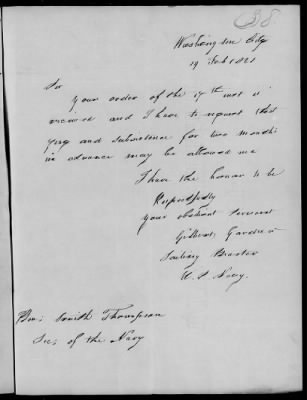 38
Washington City
19 Feb 1821
Sir
Your order of the 17th inst is
received and I have to request that
pay and subsistence for two months
in advance may be allowed me
I have the honour to be
Respectfully
your obedient servant
Gilbert
Sailing Master
U. S. Navy.
Hon; Smith Thompson
Sec; of the Navy